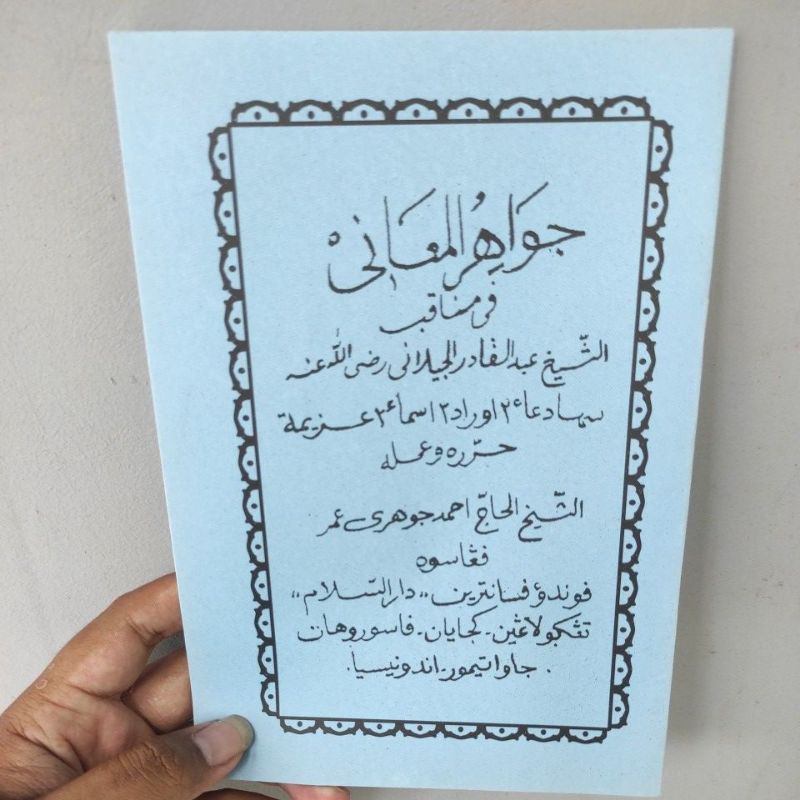 جَوَاهِرُ المَعَانِى
فى مناقب
الشّيخ عبد القادر الجيلانى رضى اللّٰه عنه
سرتا دعاء٢ اوراد٢ اسماء٢ عزيمة
حرّره وعمله
الشّيخ الحاجّ احمد جوهرى عمر
ڤڠاسوه
فوندؤ فسانترين ,,دار السّلام,,
تڠكولاڠين - كجايان - فاسوروهان
. جاوا تيمور - اندونيسيا .